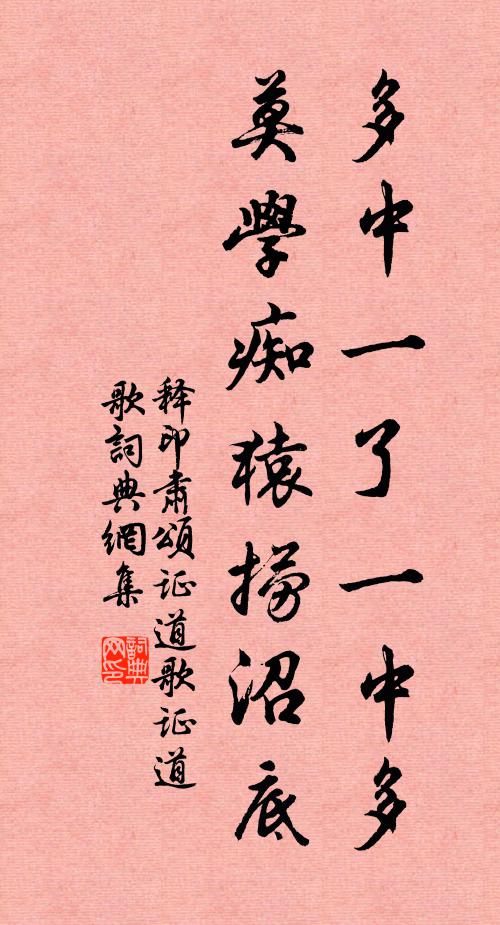 多中一了一中多
莫學痴猿捞沼底
释印肃頌证道歌证道
歌詞典網集
詞典网印